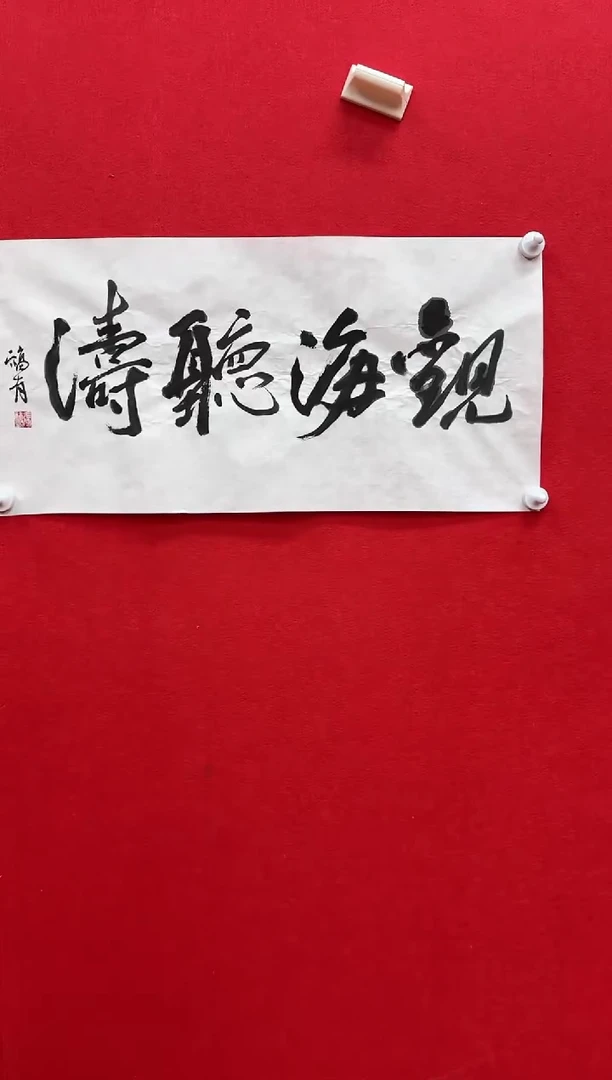 觀海聽濤
福有